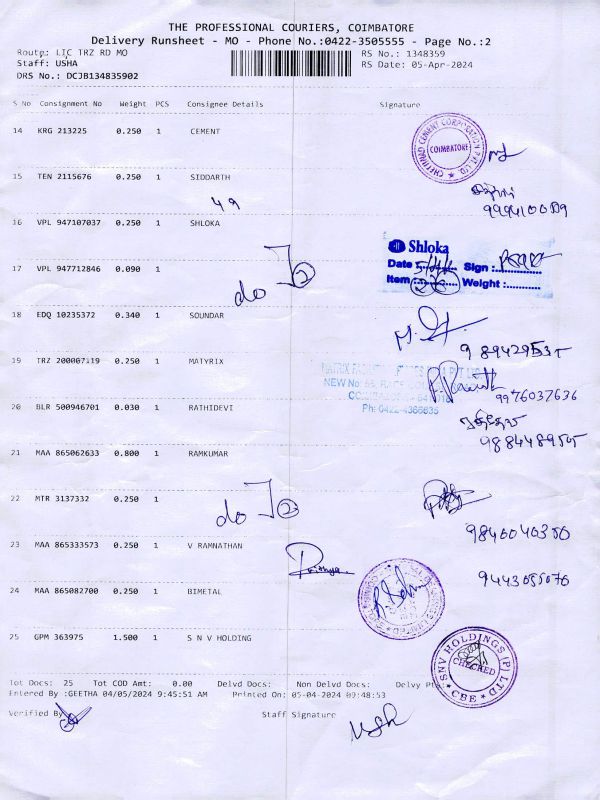 THE PROFESSIONAL COURIERS, COIMBATORE
Delivery Runsheet - MO - Phone No.:0422-3505555 - Page No.:2
Route: LIC TRZ RD MO RS No.: 1348359
Staff: USHA RS Date: 05-Apr-2024
DRS No.: DCJB134835902
S No Consignment No Weight PCS Consignee Details Signature
14 KRG 213225 0.250 1 CEMENT
CHETTINAD CEMENT CORPORATION PVT LTD. COIMBATORE
15 TEN 2115676 0.250 1 SIDDARTH
49
16 VPL 947107037 0.250 1 SHLOKA
Shloka
17 VPL 947712846 0.090 1
do
Date 5/4/ Sign :
Item Weight :
18 EDQ 10235372 0.340 1 SOUNDAR
19 TRZ 200007119 0.250 1 MATYRIX
9976037636
20 BLR 500946701 0.030 1 RATHIDEVI
Ph: 0422-4366835
21 MAA 865062633 0.800 1 RAMKUMAR
22 MTR 3137332 0.250 1
do
9840040350
23 MAA 865333573 0.250 1 V RAMNATHAN
24 MAA 865082700 0.250 1 BIMETAL
25 GPM 363975 1.500 1 S N V HOLDING
SNV HOLDINGS (P) LTD CHECKED CBE
Tot Docs: 25 Tot COD Amt: 0.00 Delvd Docs: Non Delvd Docs: Delvy
Entered By :GEETHA 04/05/2024 9:45:51 AM Printed On: 05-04-2024 09:48:53
Verified By Staff Signature